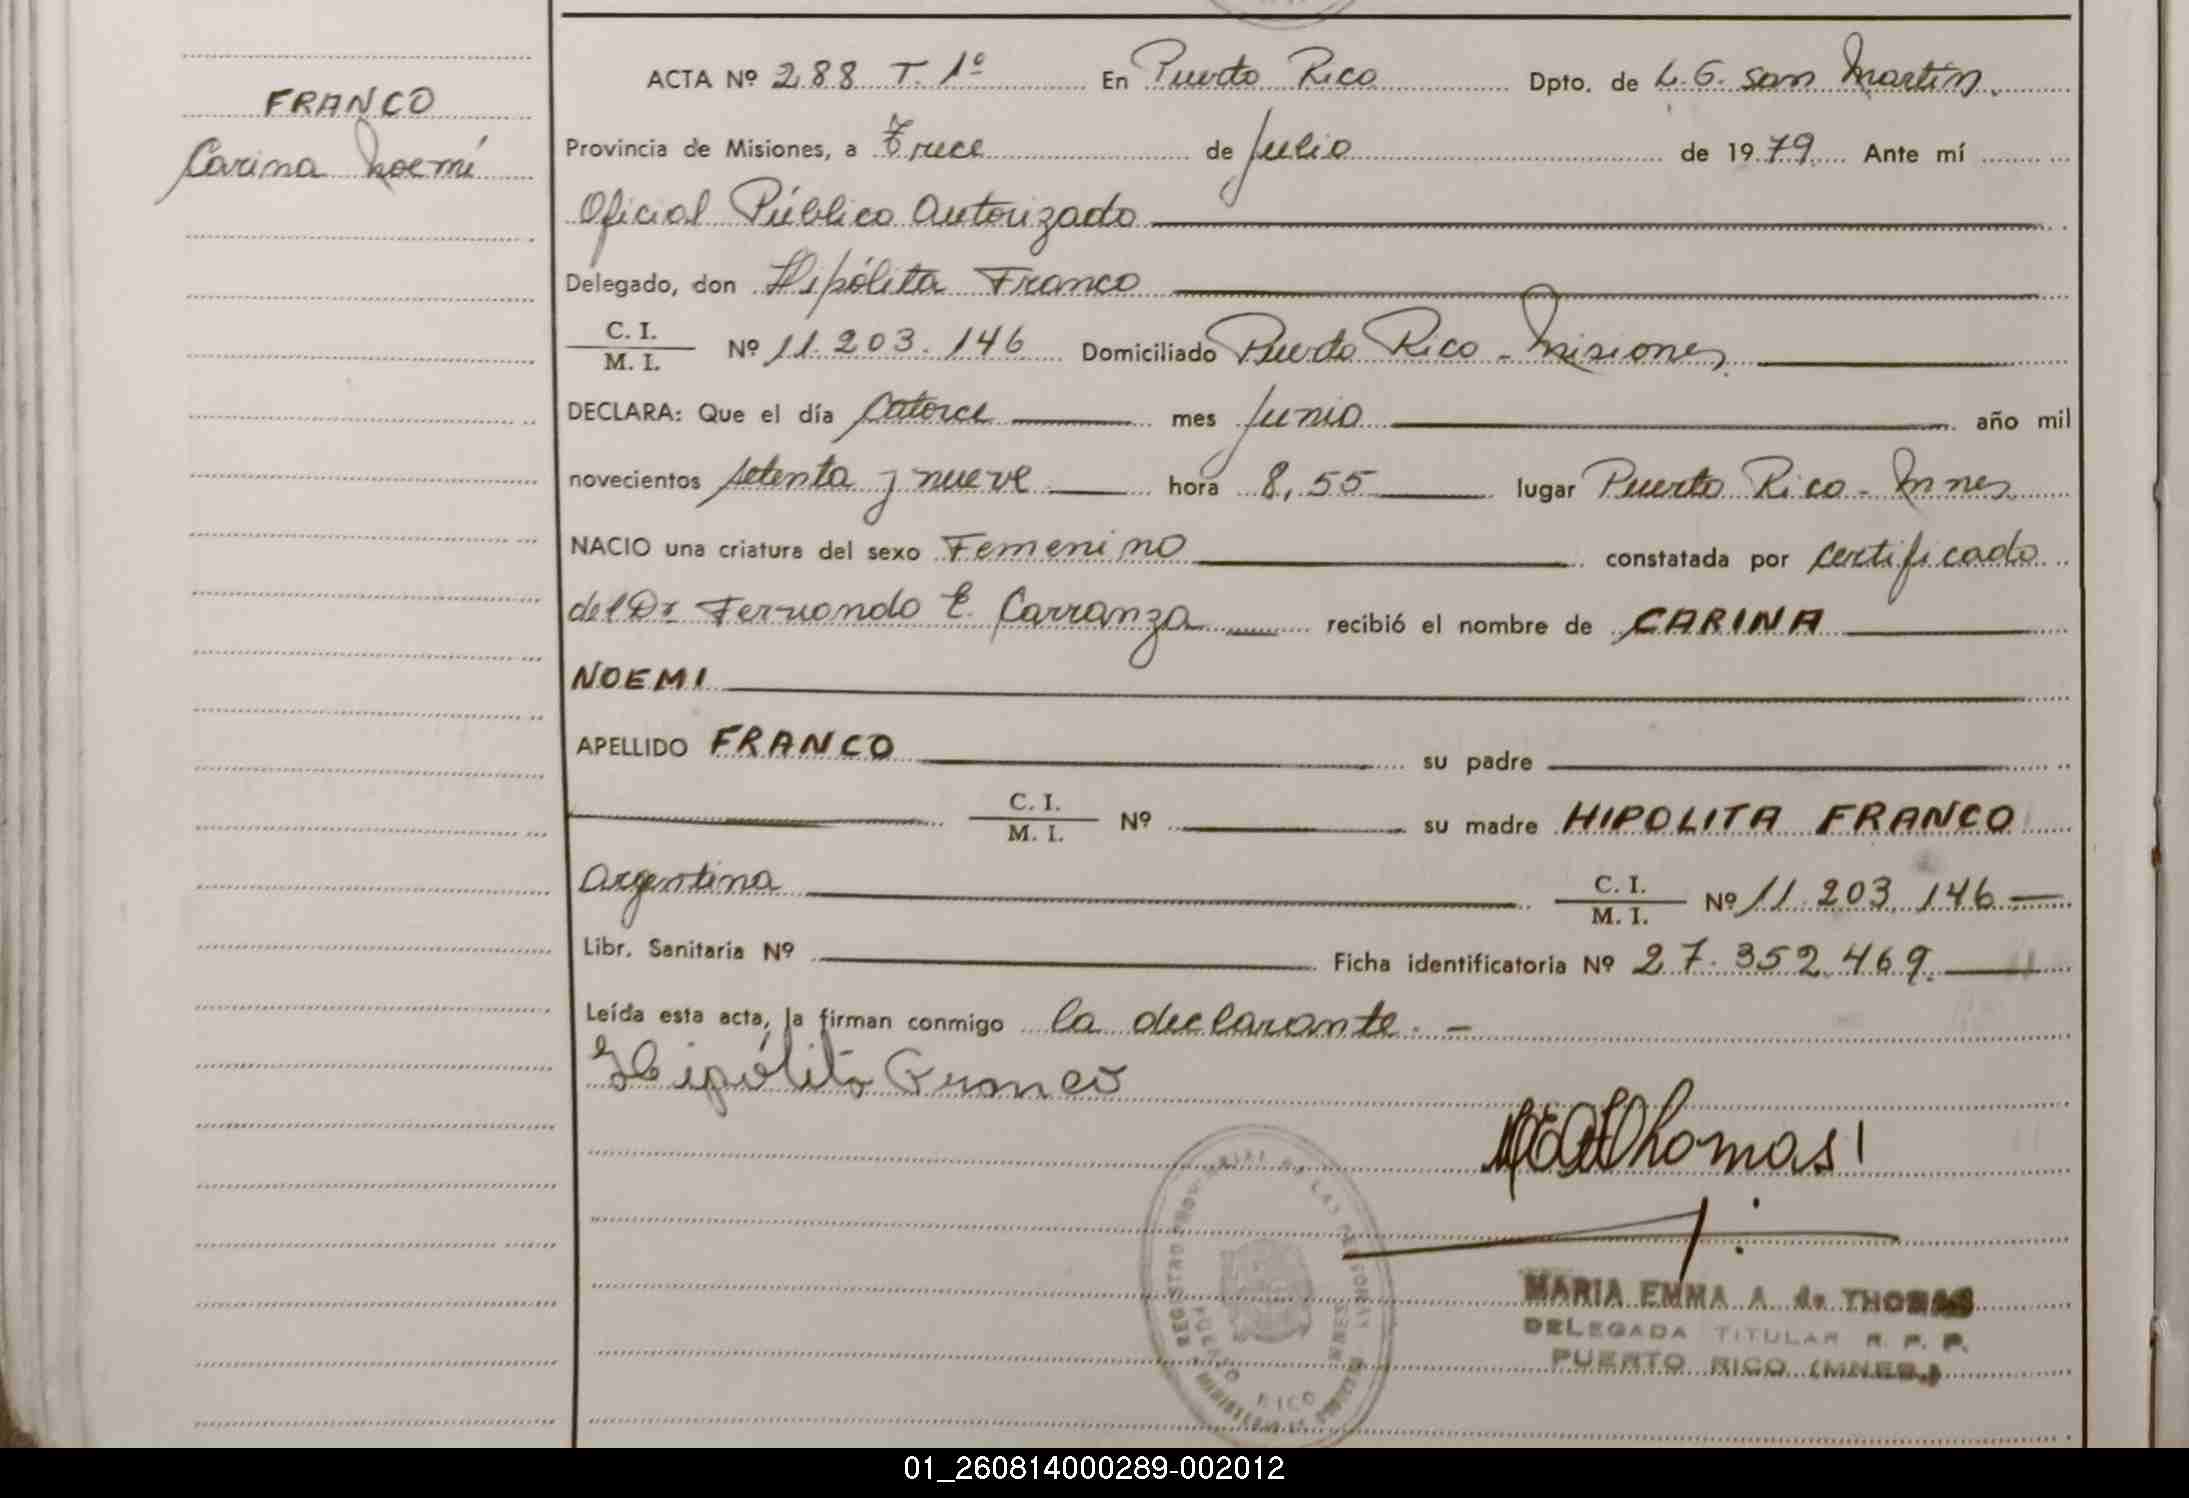 FRANCO
Carina Noemí
ACTA Nº 288 T. 1º En Puerto Rico Dpto. de L. G. San Martín.
Provincia de Misiones, a Trece de Julio de 1979. Ante mí
Oficial Público Autorizado
Delegado, don Hipólita Franco
C. I. / M. I. Nº 11.203.146 Domiciliado Puerto Rico - Misiones
DECLARA: Que el día Catorce mes Junio año mil
novecientos setenta y nueve hora 8,55 lugar Puerto Rico - Mnes
NACIO una criatura del sexo Femenino constatada por certificado
del Dr Fernando E. Carranza recibió el nombre de CARINA
NOEMI
APELLIDO FRANCO su padre
C. I. / M. I. Nº su madre HIPOLITA FRANCO
Argentina C. I. / M. I. Nº 11.203.146
Libr. Sanitaria Nº Ficha identificatoria Nº 27.352.469.
Leída esta acta, la firman conmigo la declarante. -
Hipólita Franco
Thomas
REGISTRO PROVINCIAL DE LAS PERSONAS
PUERTO RICO MNES
MARIA EMMA A. de THOMAS
DELEGADA TITULAR R. P. P.
PUERTO RICO (MNES.)
01_260814000289-002012